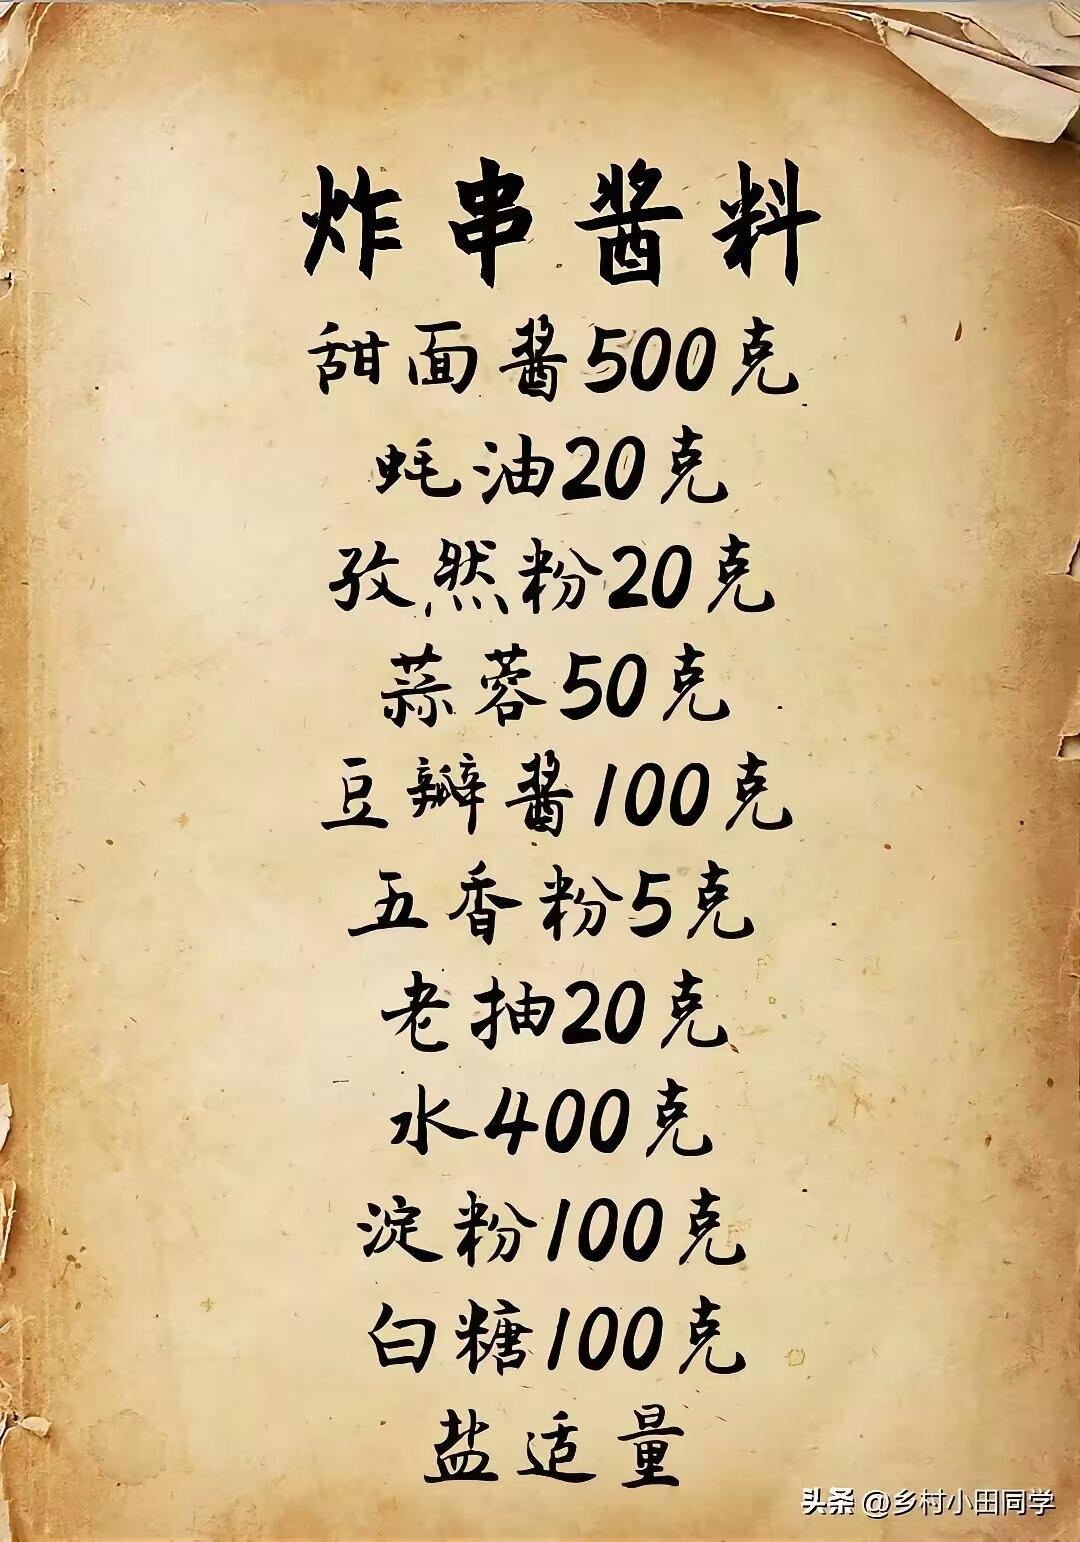 炸串酱料
甜面酱500克
蚝油20克
孜然粉20克
蒜蓉50克
豆瓣酱100克
五香粉5克
老抽20克
水400克
淀粉100克
白糖100克
盐适量
头条 @乡村小田同学